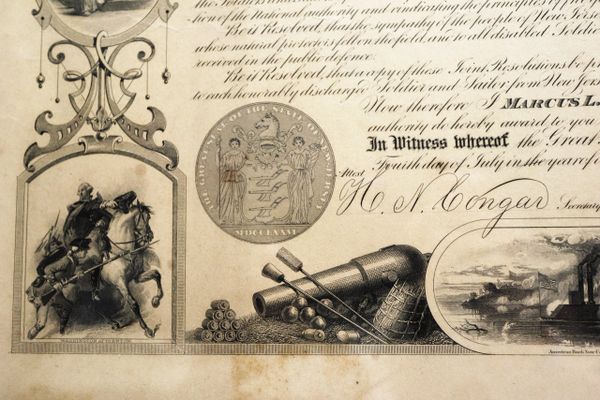 tion of the National authority and vindicating the principles of
Be it Resolved, that the sympathy of the people of New Jerse
whose natural protectors fell on the field, and to all disabled Soldie
received in the public defence.
Be it Resolved, that a copy of these Joint Resolutions be p
to each honorably discharged Soldier and Sailor from New Jers
Now therefore I MARCUS L.
authority do hereby award to you
In Witness whereof the Great S
Fourth day of July in the year of o
Attest
H. N. Congar Secretary
THE GREAT SEAL OF THE STATE OF NEW JERSEY
MDCCLXXVI
American Bank Note Co